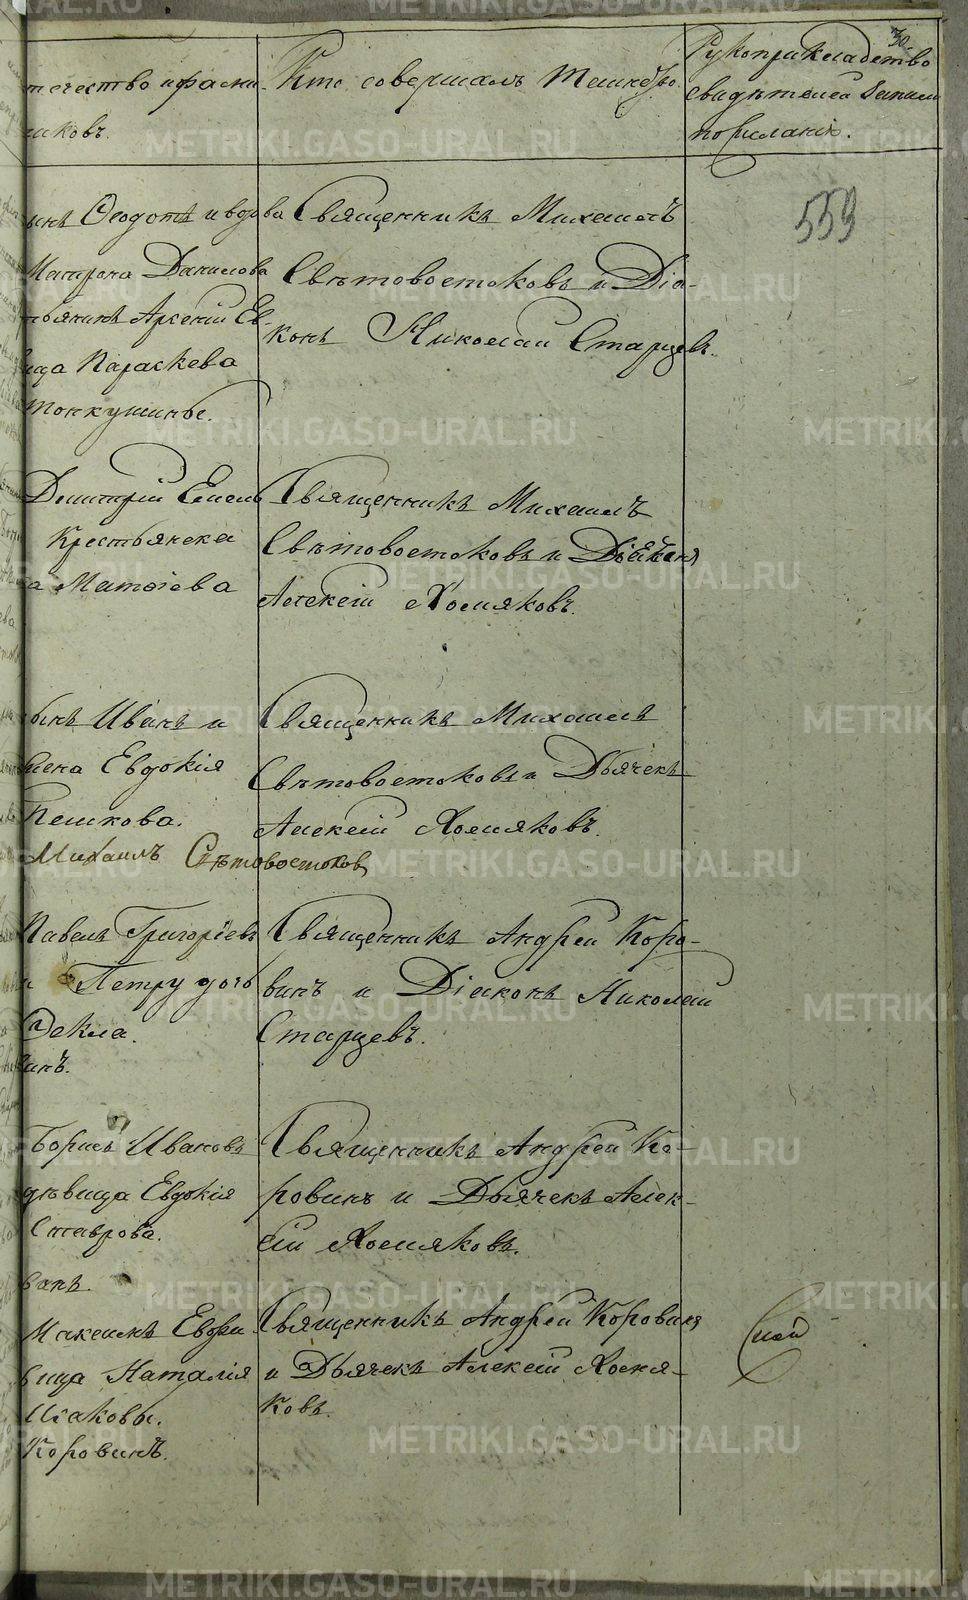 30.
течество и фами-
иковъ.
Кто совершалъ Таинство.
Рукоприкладство
свидѣтелей записи
по желанію.
559
ынъ Ѳеодотъ и вдова
Матрона Данилова
тьянинъ Арсеній Ев-
ица Параскева
Тонкушины.
Священникъ Михаилъ
Свѣтовостоковъ и Діа-
конъ Николай Старцевъ.
Димитрій Емель
Крестьянска
а Матѳіева
Священникъ Михаилъ
Свѣтовостоковъ и
Алексій Хомяковъ.
ынъ Иванъ и
Евдокія
Пешкова.
Михаилъ Свѣтовостоков
Священникъ Михаилъ
Свѣтовостоковъ и Дьячекъ
Алексій Хомяковъ.
Павелъ Григорьевъ
Петру дочь
Ѳекла.
инъ.
Священникъ Андрей Коро-
винъ и Діаконъ Николай
Старцевъ.
Борисъ Ивановъ
дѣвица Евдокія
Ставрова.
ванъ.
Священникъ Андрей Ко-
ровинъ и Дьячекъ Алек-
сій Хомяковъ.
Максимъ Евфи-
вица Наталія
Исаковы.
Коровинъ.
Священникъ Андрей Коровинъ
и Дьячекъ Алексій Хомя-
ковъ.
METRIKI.GASO-URAL.RU